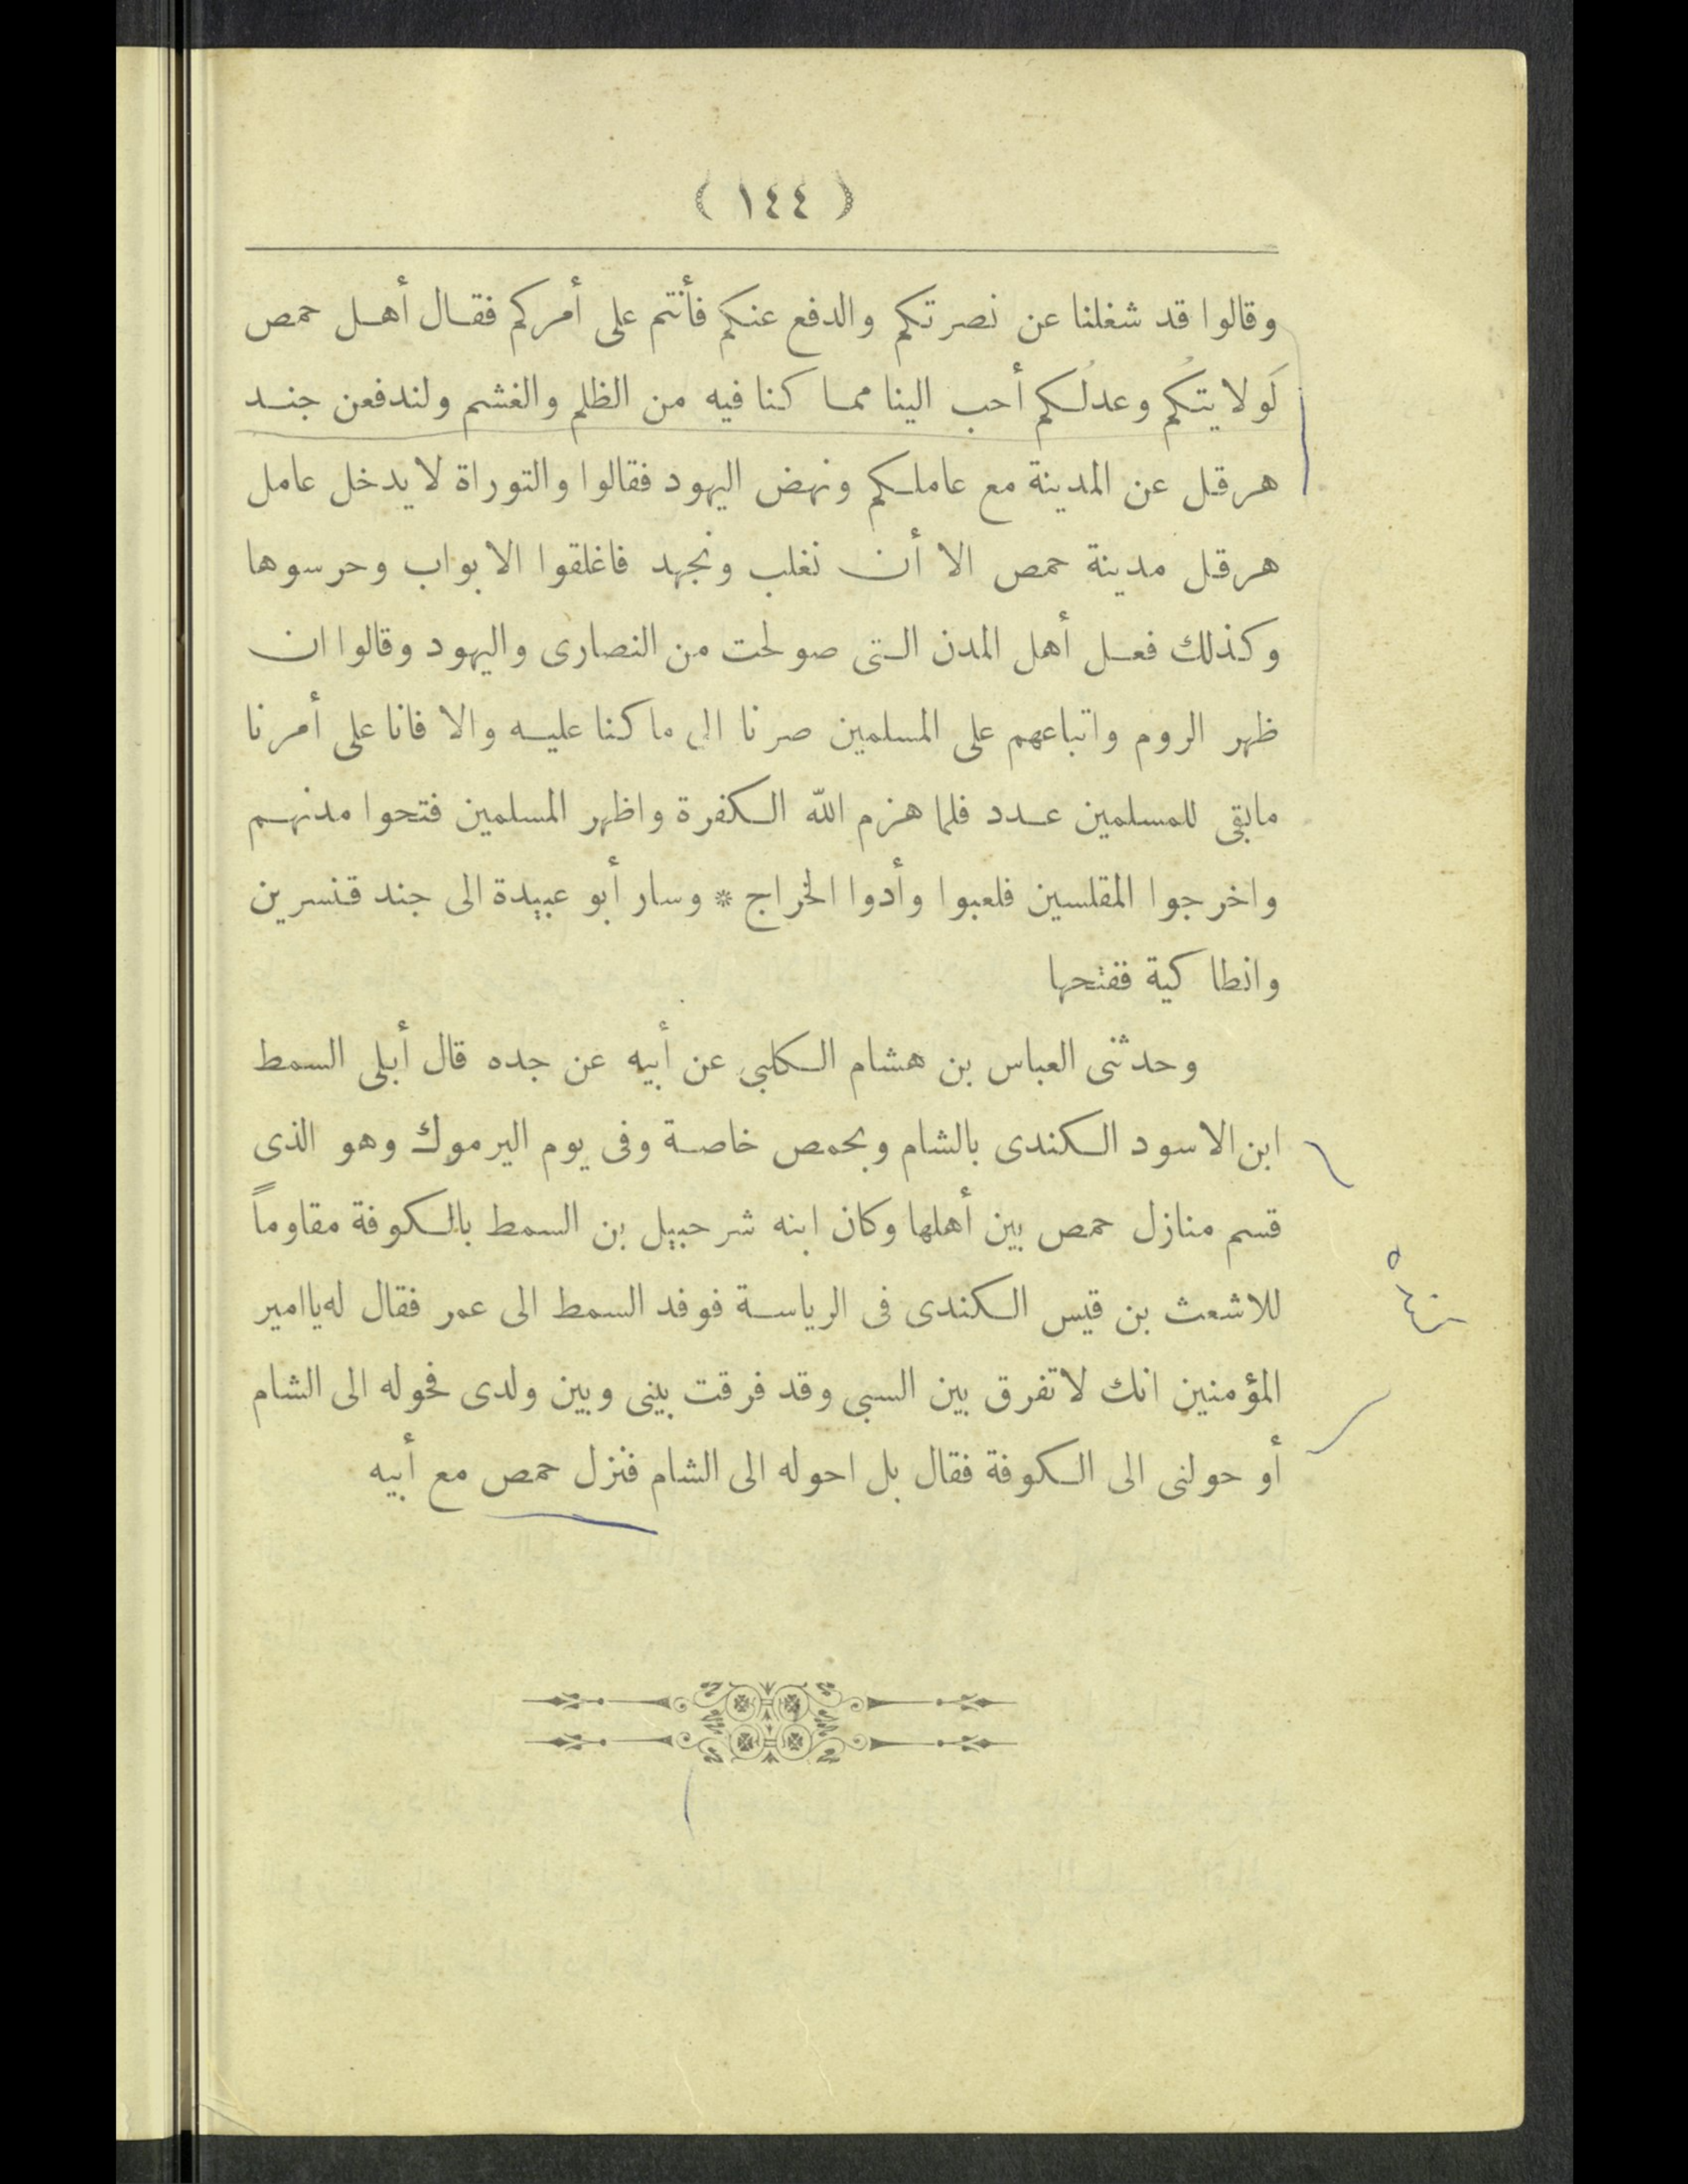 ( ١٤٤ )
وقالوا قد شغلنا عن نصرتكم والدفع عنكم فأنتم على أمركم فقال أهل حمص
لَولايتكُم وعدلُكم أحب الينا مما كنا فيه من الظلم والغشم ولندفعن جند
هرقل عن المدينة مع عاملكم ونهض اليهود فقالوا والتوراة لا يدخل عامل
هرقل مدينة حمص الا أن نغلب ونجهد فاغلقوا الابواب وحرسوها
وكذلك فعل أهل المدن التى صولحت من النصارى واليهود وقالوا ان
ظهر الروم واتباعهم على المسلمين صرنا الى ما كنا عليه والا فانا على أمرنا
مابقى للمسلمين عدد فلما هزم الله الكفرة واظهر المسلمين فتحوا مدنهم
واخرجوا المقلسين فلعبوا وأدوا الخراج * وسار أبو عبيدة الى جند قنسرين
وانطاكية ففتحها
وحدثنى العباس بن هشام الكلبى عن أبيه عن جده قال أبلى السمط
ابن الاسود الكندى بالشام وبحمص خاصة وفى يوم اليرموك وهو الذى
قسم منازل حمص بين أهلها وكان ابنه شرحبيل بن السمط بالكوفة مقاوماً
للاشعث بن قيس الكندى فى الرياسة فوفد السمط الى عمر فقال له ياامير
المؤمنين انك لا تفرق بين السبى وقد فرقت بينى وبين ولدى فحوله الى الشام
أو حولنى الى الكوفة فقال بل احوله الى الشام فنزل حمص مع أبيه